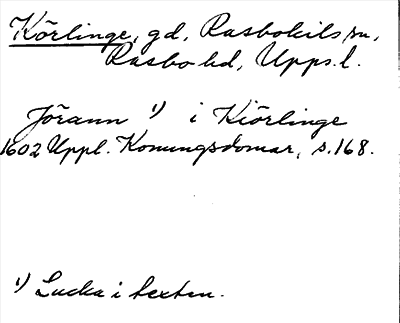 Körlinge, gd, Rasbokils sn,
Rasbo hd, Upps. l.
Jörann ¹⁾ i Kiörlinge
1602 Uppl. Konungsdomar, s. 168.
¹⁾ Lucka i texten.